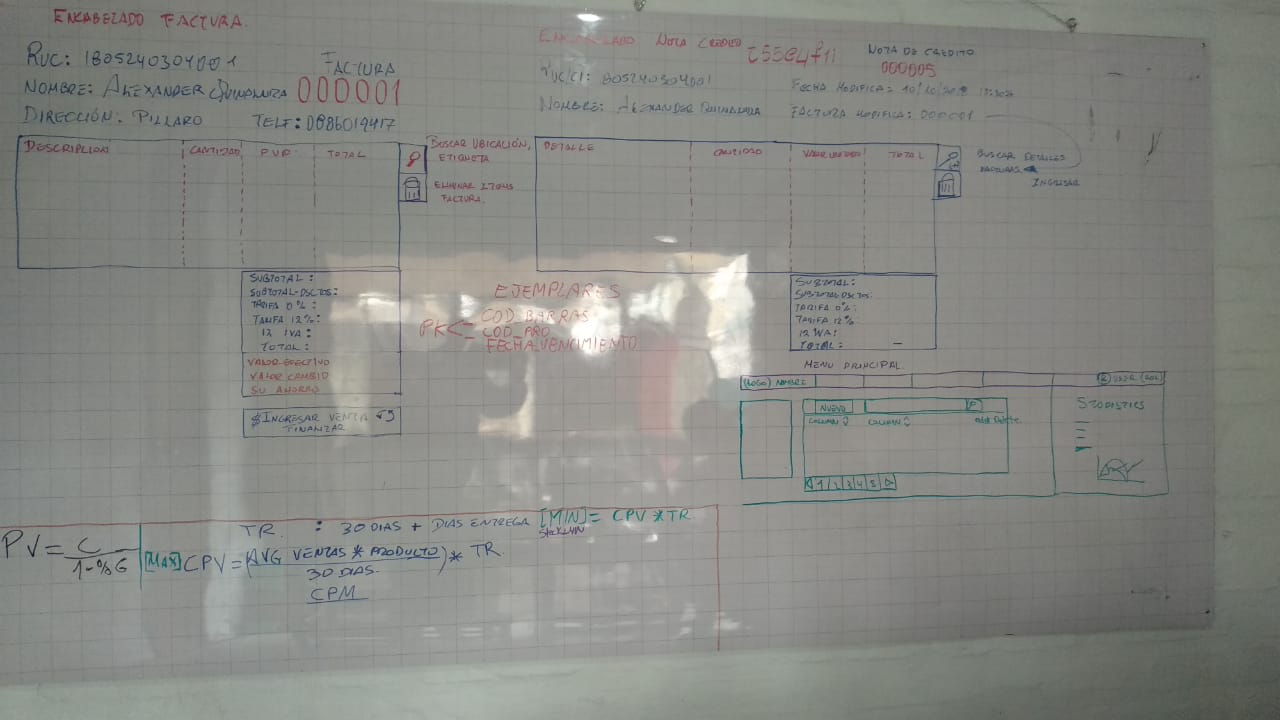 ENCABEZADO FACTURA.
RUC: 1805240304001
FACTURA
NOMBRE: ALEXANDER QUINALUIZA 000001
DIRECCIÓN: PILLARO TELF: 0986019417
DESCRIPCION CANTIDAD PVP TOTAL
BUSCAR UBICACIÓN,
ETIQUETA
ELIMINAR ITEMS
FACTURA.
SUBTOTAL:
SUBTOTAL-DSCTOS:
TARIFA 0%:
TARIFA 12%:
12 IVA:
TOTAL:
VALOR EFECTIVO
VALOR CAMBIO
SU AHORRO
$ INGRESAR VENTA
FINANZAR
NOTA CREDITO
NOTA DE CREDITO
000005
NOMBRE: ALEXANDER QUINALUIZA
FECHA MODIFICA:
FACTURA MODIFICA: 000001
DETALLE CANTIDAD TOTAL
BUSCAR DETALLES
INGRESAR
SUBTOTAL:
SUBTOTAL DSCTOS:
TARIFA 0%:
TARIFA 12%
12 IVA:
TOTAL:
EJEMPLARES
COD_BARRAS
PK COD_PRO
FECHA_VENCIMIENTO
MENU PRINCIPAL
(LOGO) NOMBRE USER (ROL)
NUEVO
COLUMN COLUMN
1 2 3 4 5
TR. : 30 DIAS + DIAS ENTREGA [MIN] = CPV * TR.
PV = C / 1-%G
[MAX] CPV = (AVG VENTAS * PRODUCTO / 30 DIAS) * TR
CPM